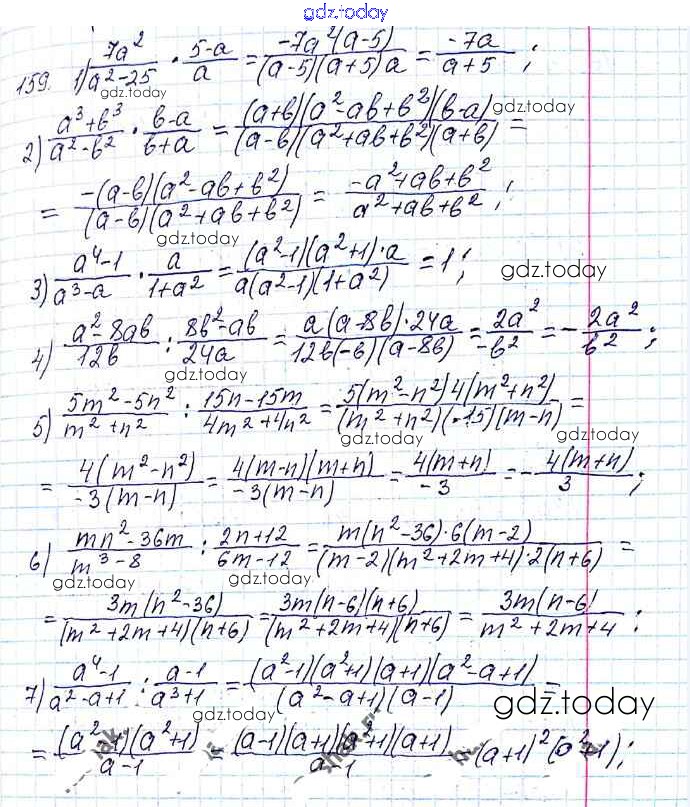 gdz.today
159. 1) 7a²/(a²-25) · (5-a)/a = -7a²(a-5)/((a-5)(a+5)a) = -7a/(a+5) ;
gdz.today
2) (a³+b³)/(a²-b²) · (b-a)/(b+a) = (a+b)(a²-ab+b²)(b-a)/((a-b)(a²+ab+b²)(a+b)) =
gdz.today
= -(a-b)(a²-ab+b²)/((a-b)(a²+ab+b²)) = (-a²+ab+b²)/(a²+ab+b²) ;
gdz.today
3) (a⁴-1)/(a³-a) · a/(1+a²) = (a²-1)(a²+1)·a/(a(a²-1)(1+a²)) = 1 ;
gdz.today
4) (a²-8ab)/12b : (8b²-ab)/24a = a(a-8b)·24a/(12b(-b)(a-8b)) = 2a²/-b² = -2a²/b² ;
gdz.today
5) (5m²-5n²)/(m²+n²) : (15n-15m)/(4m²+4n²) = 5(m²-n²)4(m²+n²)/((m²+n²)(-15)(m-n)) =
gdz.today gdz.today
= 4(m²-n²)/(-3(m-n)) = 4(m-n)(m+n)/(-3(m-n)) = 4(m+n)/-3 = -4(m+n)/3 ;
6) (mn²-36m)/(m³-8) : (2n+12)/(6m-12) = m(n²-36)·6(m-2)/((m-2)(m²+2m+4)·2(n+6)) =
gdz.today gdz.today
= 3m(n²-36)/((m²+2m+4)(n+6)) = 3m(n-6)(n+6)/((m²+2m+4)(n+6)) = 3m(n-6)/(m²+2m+4) ;
7) (a⁴-1)/(a²-a+1) : (a-1)/(a³+1) = (a²-1)(a²+1)(a+1)(a²-a+1)/((a²-a+1)(a-1)) =
gdz.today gdz.today
= (a²-1)(a²+1)/(a-1) = (a-1)(a+1)(a²+1)(a+1)/(a-1) = (a+1)²(a²+1) ;